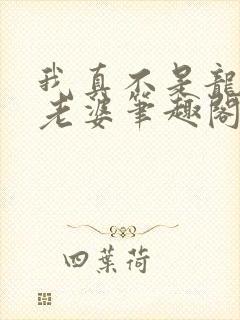 我真不是龍
老婆筆趣閣
四葉荷